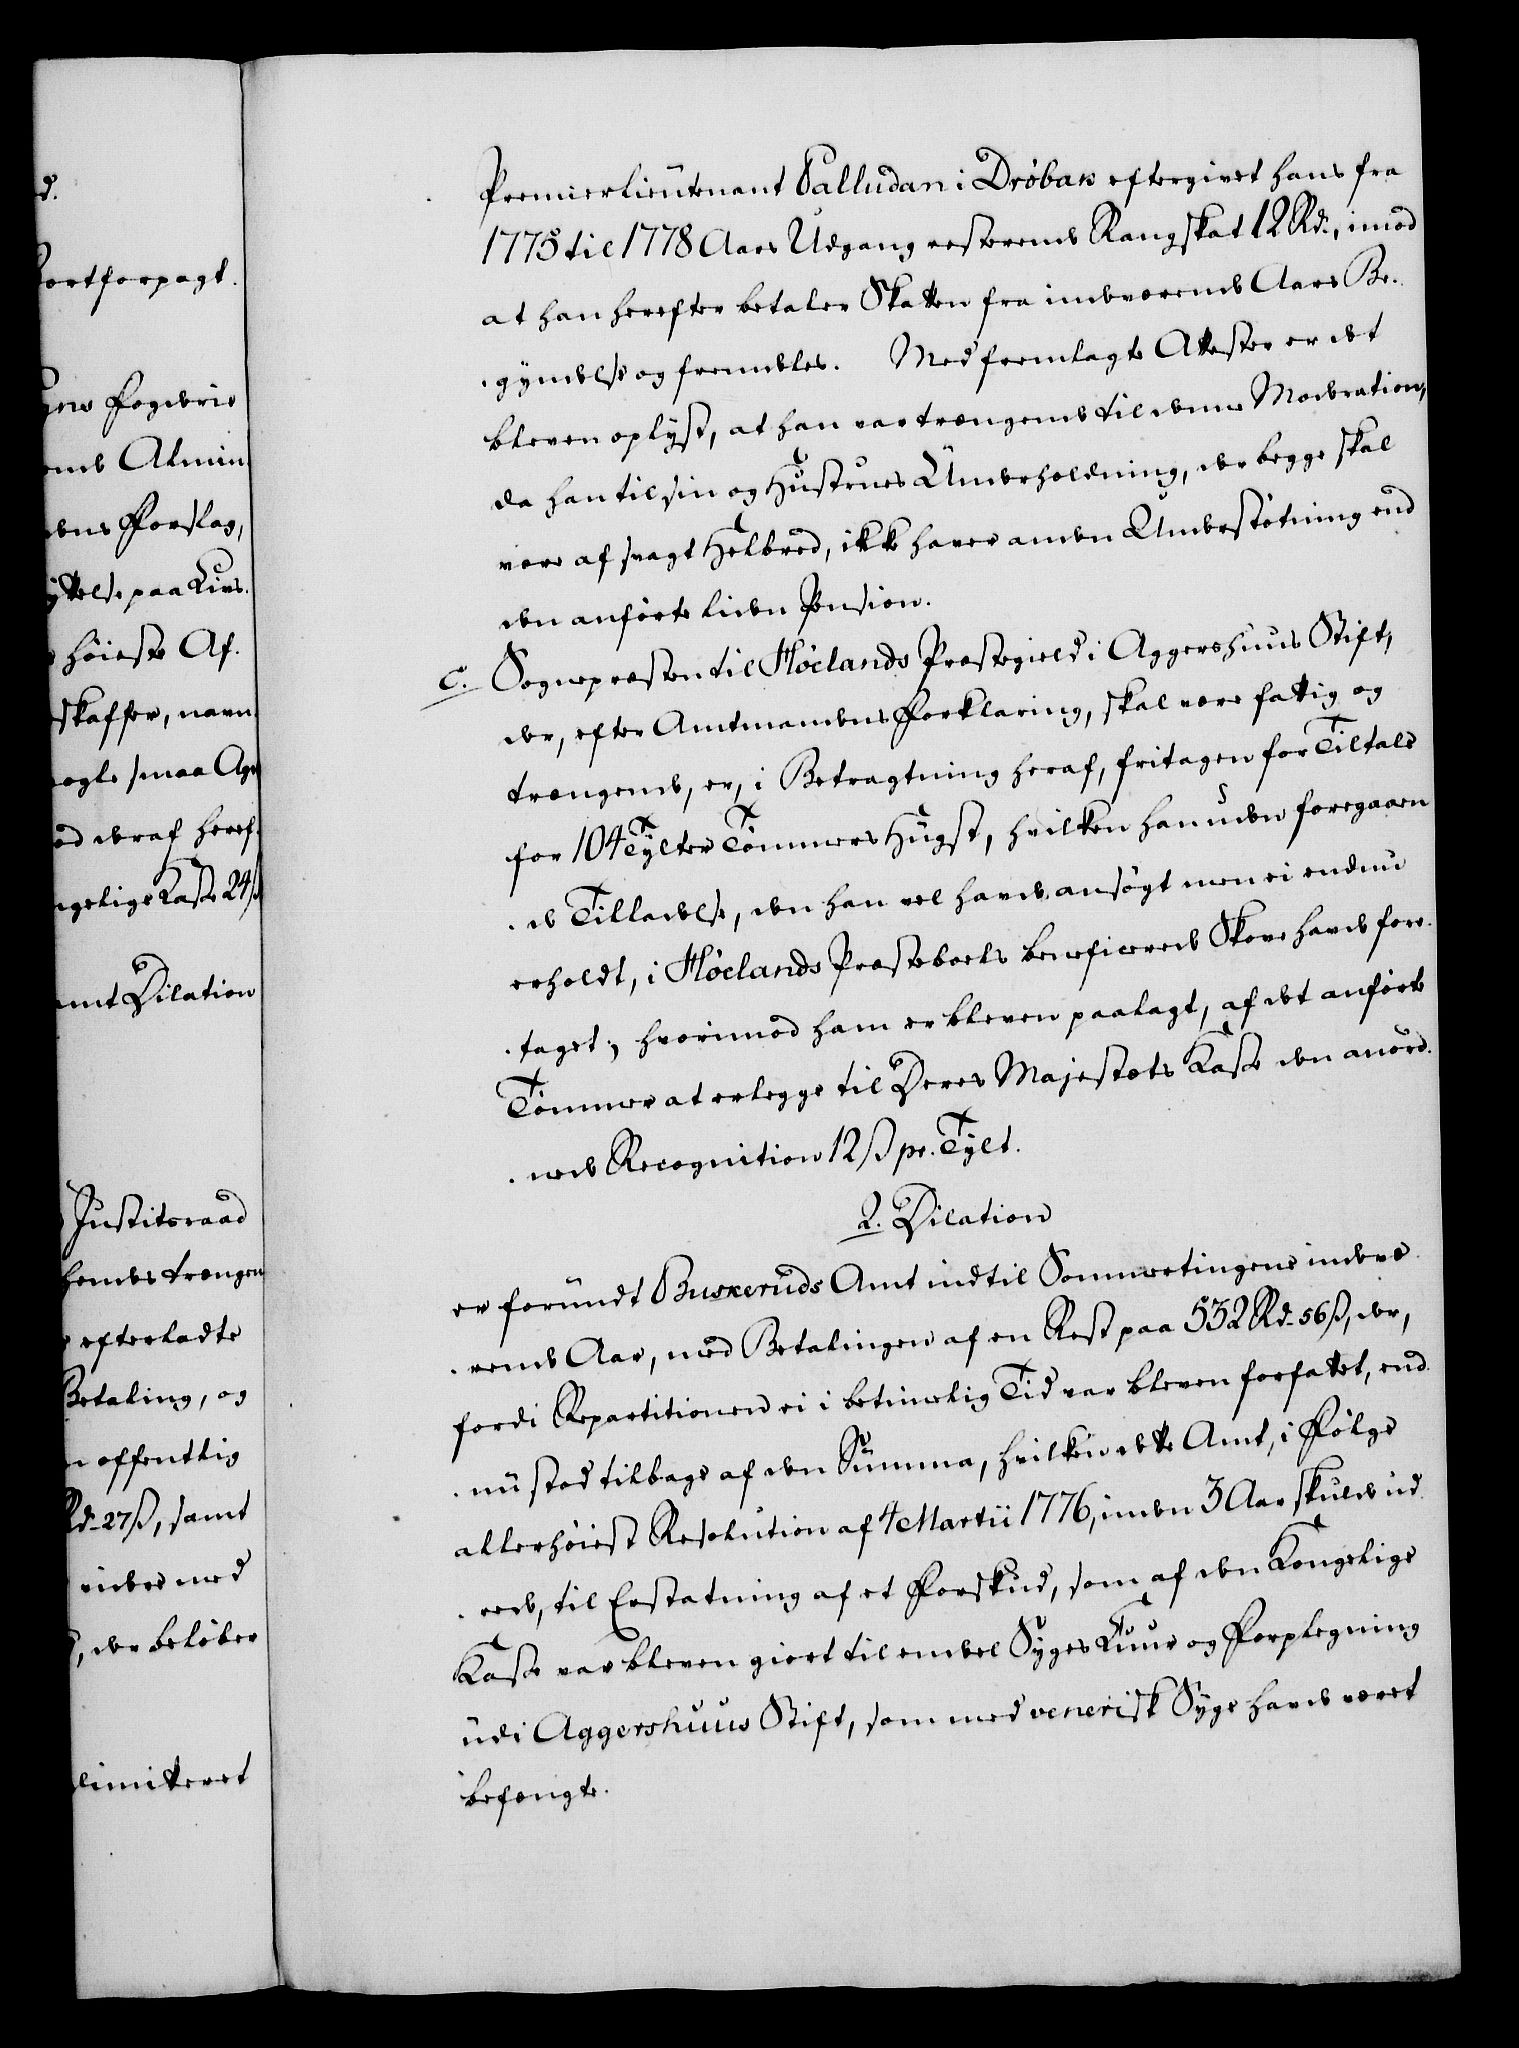 d.
fortforpagt.
Fogderie
Almin
dens Forslag,
paa Livs.
høieste Af.
skaffer, navn
nogle smaa Age
deraf heref.
Kasse 24ß
samt Dilation
Justitsraad
hendes trængen
efterladte
Betaling, og
offentlig
Rd. 27ß, samt
med
, der beløber
limitteret
Premierlieutenant Palludan i Drøbak eftergivet hans fra
1775 til 1778 Aars Udgang resterende Rangskat 12 Rd., imod
at han herefter betaler Skatten fra indeværende Aars Be-
gyndelse og fremdeles. Med fremlagte Attester er det
bleven oplyst, at han var trængende til denne Moderation,
da han til sin og Hustrues Underholdning, der begge skal
være af svagt Helbred, ikke haver anden Understøtning end
den anførte liden Pension.
c. Sognepræsten til Høelands Præstegield i Aggershuus Stift,
der, efter Amtmandens Forklaring, skal være fattig og
trængende, er, i Betragtning heraf, fritagen for Tiltale
for 104 Tylter Tømmers Hugst, hvilken han uden foregaaen
de Tilladelse, den han vel havde ansøgt men ei endnu
erholdt, i Høelands Præsteboels beneficerede Skove havde fore-
taget; hvorimod ham er bleven paalagt, af det anførte
Tømmer at erlegge til Deres Majestæts Kasse den anord-
nede Recognition 12 ß pr. Tylt.
2. Dilation
er forundt Buskeruds Amt indtil Sommertingene indevæ-
rende Aar, med Betalingen af en Rest paa 532 Rd. 56 ß, der,
fordi Repartitionen ei i betimelig Tid var bleven forfattet, end-
nu stod tilbage af den Summa, hvilken dette Amt, i Følge
allerhøiest Resolution af 4 Martii 1776, inden 3 Aar skulde ud-
rede, til Erstatning af et Forskud, som af den Kongelige
Kasse var bleven giort til endeel Syges Cuur og Forplegning
udi Aggershuus Stift, som med venerisk Syge havde været
befængte.